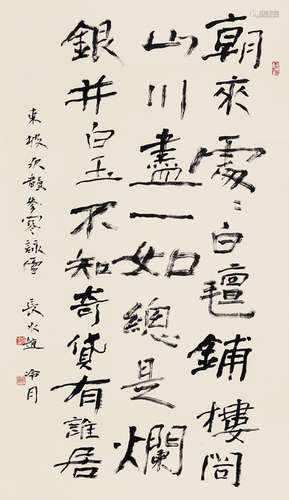 朝來處〻白氈鋪樓閣
山川盡一如總是爛
銀并白玉不知奇貨有誰居
東坡次韻參寥詠雪 長水趙冷月